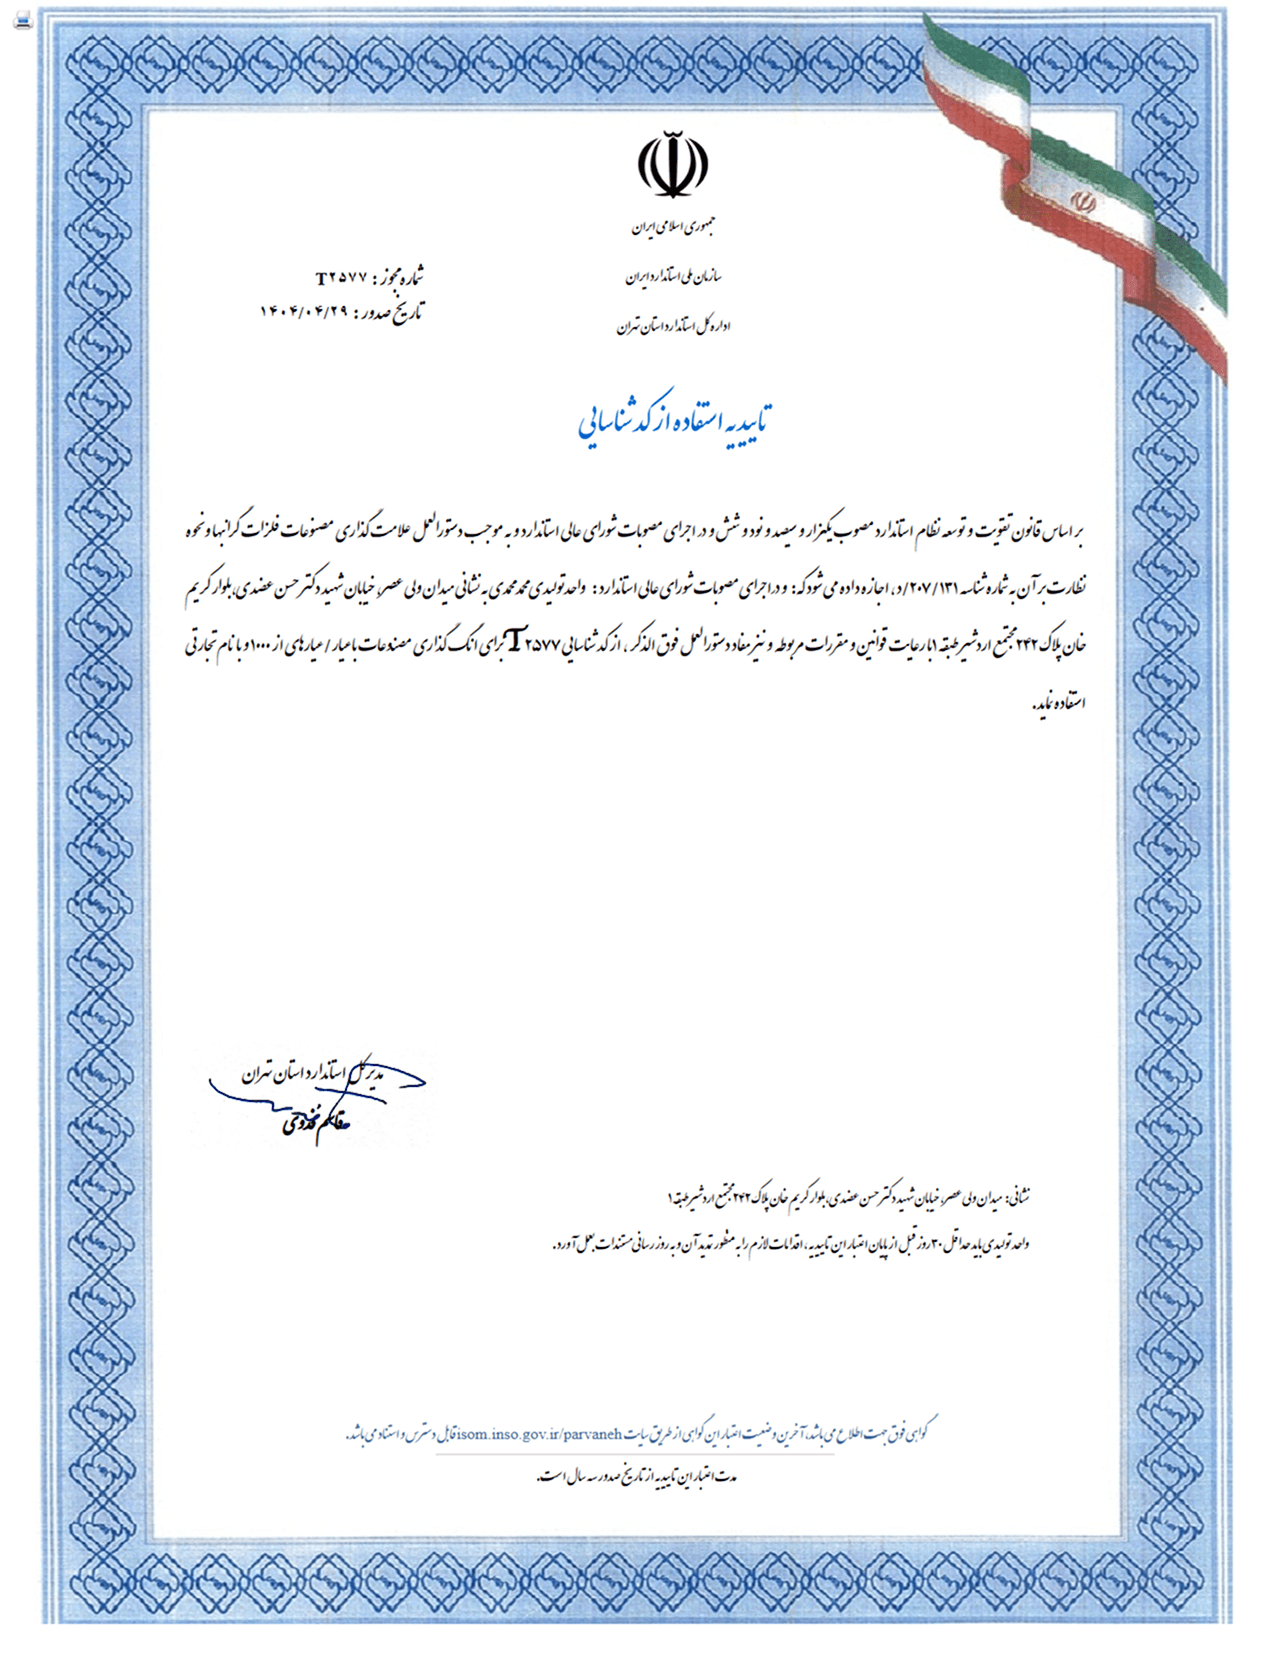 جمهوری اسلامی ایران
سازمان ملی استاندارد ایران
اداره کل استاندارد استان تهران
شماره مجوز : T۲۵۷۷
تاریخ صدور : ۱۴۰۴/۰۴/۲۹
تاییدیه استفاده از کد شناسایی
بر اساس قانون تقویت و توسعه نظام استاندارد مصوب یکهزار و سیصد و نود و شش و در اجرای مصوبات شورای عالی استاندارد و به موجب دستورالعمل علامت گذاری مصنوعات فلزات گرانبها و نحوه
نظارت بر آن به شماره شناسه ۲۰۷/۱۳۱/د، اجازه داده می شود که: و در اجرای مصوبات شورای عالی استاندارد : واحد تولیدی محمد محمدی به نشانی میدان ولی عصر، خیابان شهید دکتر حسن عضدی، بلوار کریم
خان پلاک ۲۴۲ مجتمع اردشیر طبقه ۱ با رعایت قوانین و مقررات مربوطه و نیز مفاد دستورالعمل فوق الذکر ، از کد شناسایی T۲۵۷۷ برای انگ گذاری مصنوعات با عیار / عیارهای از ۱۰۰۰ و با نام تجارتی
استفاده نماید.
مدیر کل استاندارد استان تهران
نشانی: میدان ولی عصر، خیابان شهید دکتر حسن عضدی، بلوار کریم خان پلاک ۲۴۲ مجتمع اردشیر طبقه ۱
واحد تولیدی باید حداقل ۳۰ روز قبل از پایان اعتبار این تاییدیه ، اقدامات لازم را به منظور تمدید آن و به روز رسانی مستندات بعمل آورد.
گواهی فوق جهت اطلاع می باشد، آخرین وضعیت اعتبار این گواهی از طریق سایت isom.inso.gov.ir/parvaneh قابل دسترس و استناد می باشد.
مدت اعتبار این تاییدیه از تاریخ صدور سه سال است.